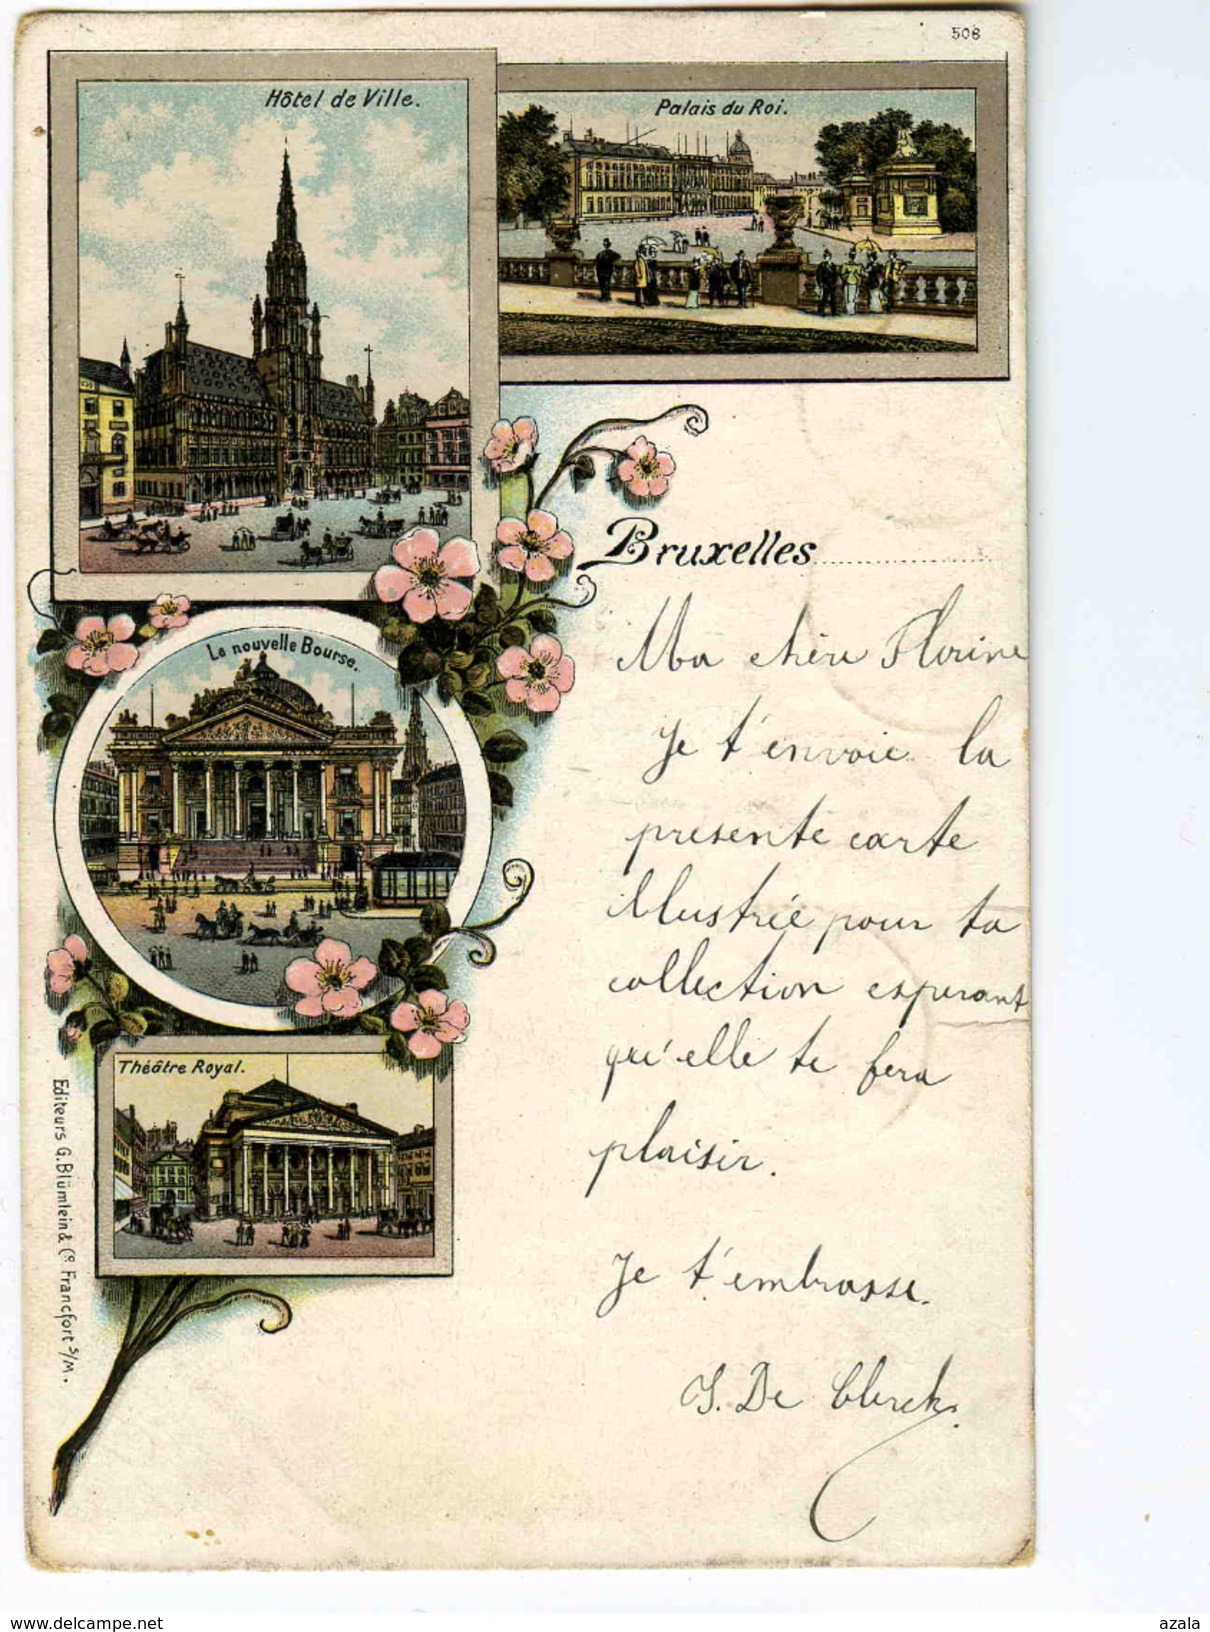 508
Hôtel de Ville.
Palais du Roi.
Bruxelles
Ma chère Florine
Je t'envoie la
presente carte
illustrée pour ta
collection esperant
qu'elle te fera
plaisir.
Je t'embrasse.
J. De Clerck.
La nouvelle Bourse.
Théâtre Royal.
Editeurs G. Blümlein & Co. Francfort s/M.
www.delcampe.net
azala